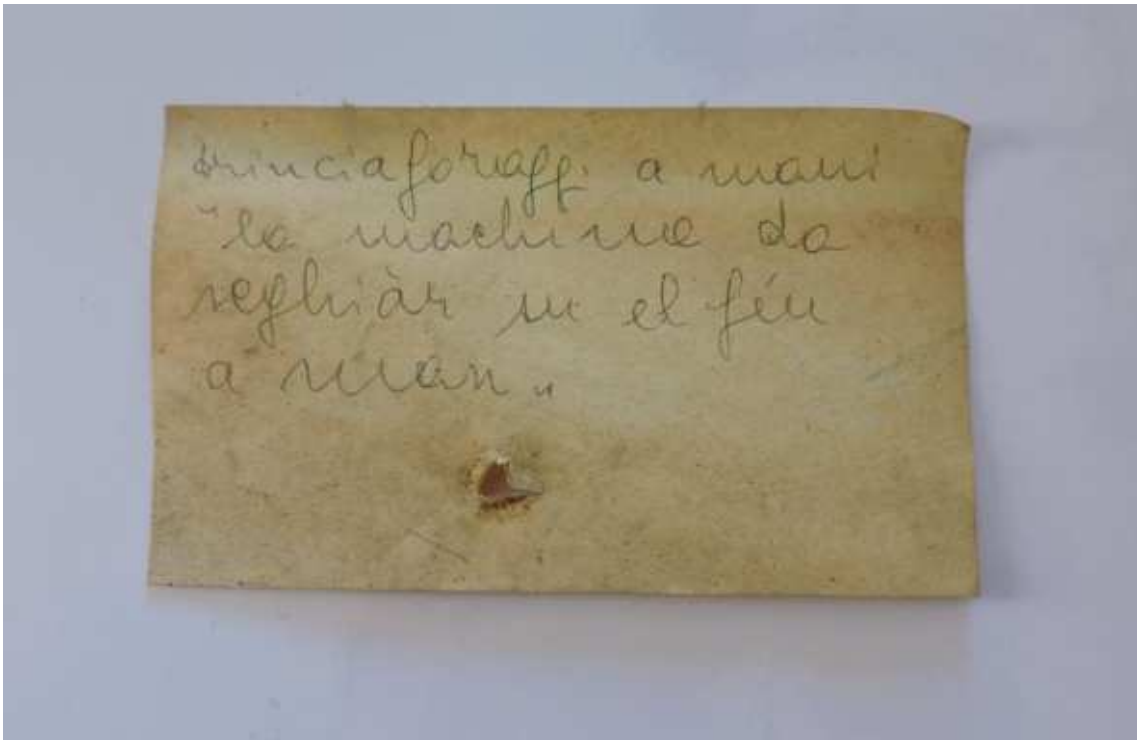 trinciaforaggi a mani
"la machina da
seghiàr su el féu
a man"